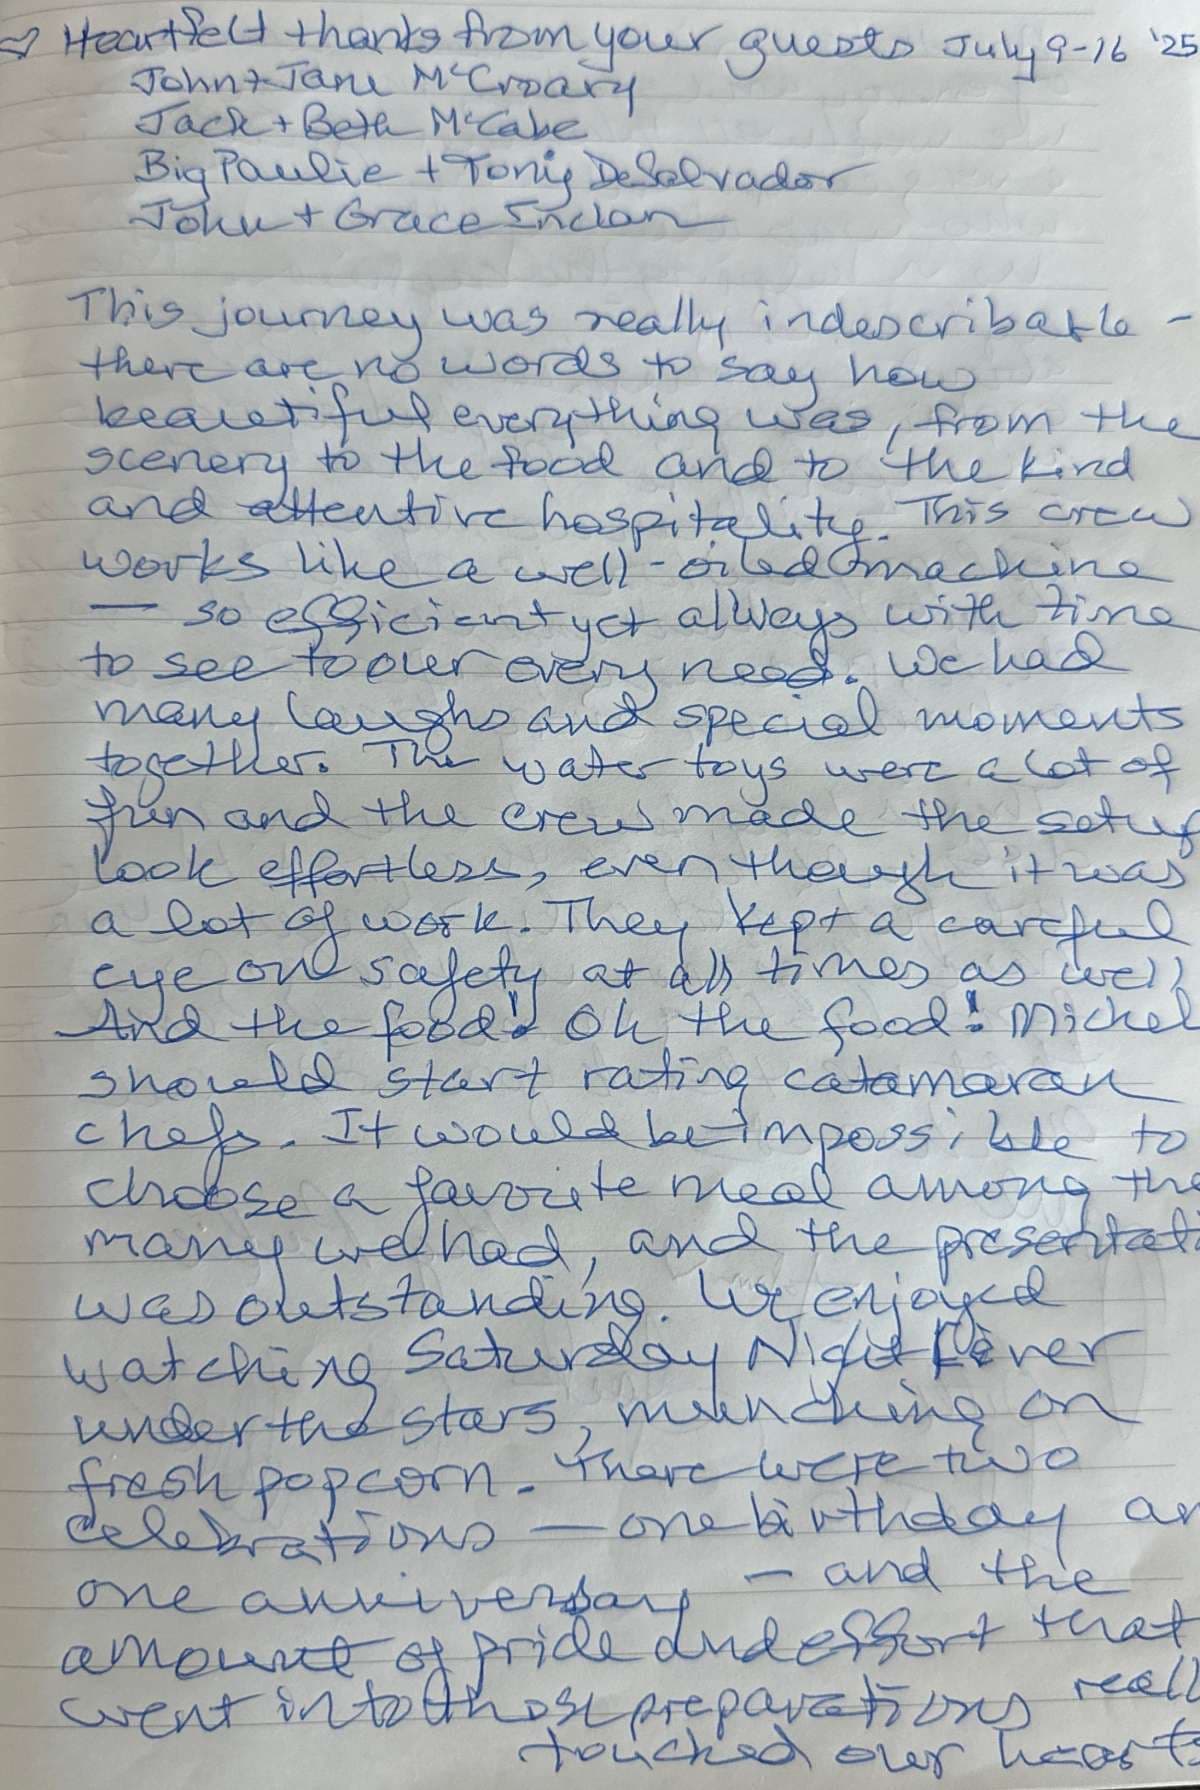 ♡ Heartfelt thanks from your guests July 9-16 '25
John + Jane McCroary
Jack + Beth McCabe
Big Paulie + Tony DeSalvador
John + Grace Inclan
This journey was really indescribable -
there are no words to say how
beautiful everything was, from the
scenery to the food and to the kind
and attentive hospitality. This crew
works like a well-oiled machine
— so efficient yet always with time
to see to our every need. We had
many laughs and special moments
together. The water toys were a lot of
fun and the crew made the setup
look effortless, even though it was
a lot of work. They kept a careful
eye on safety at all times as well
And the food! Oh the food! Michel
should start rating catamaran
chefs. It would be impossible to
choose a favorite meal among the
many we had, and the presentati
was outstanding. We enjoyed
watching Saturday Night Fever
under the stars, munching on
fresh popcorn. There were two
celebrations — one birthday an
one anniversary — and the
amount of pride and effort that
went into those preparations reall
touched our hearts